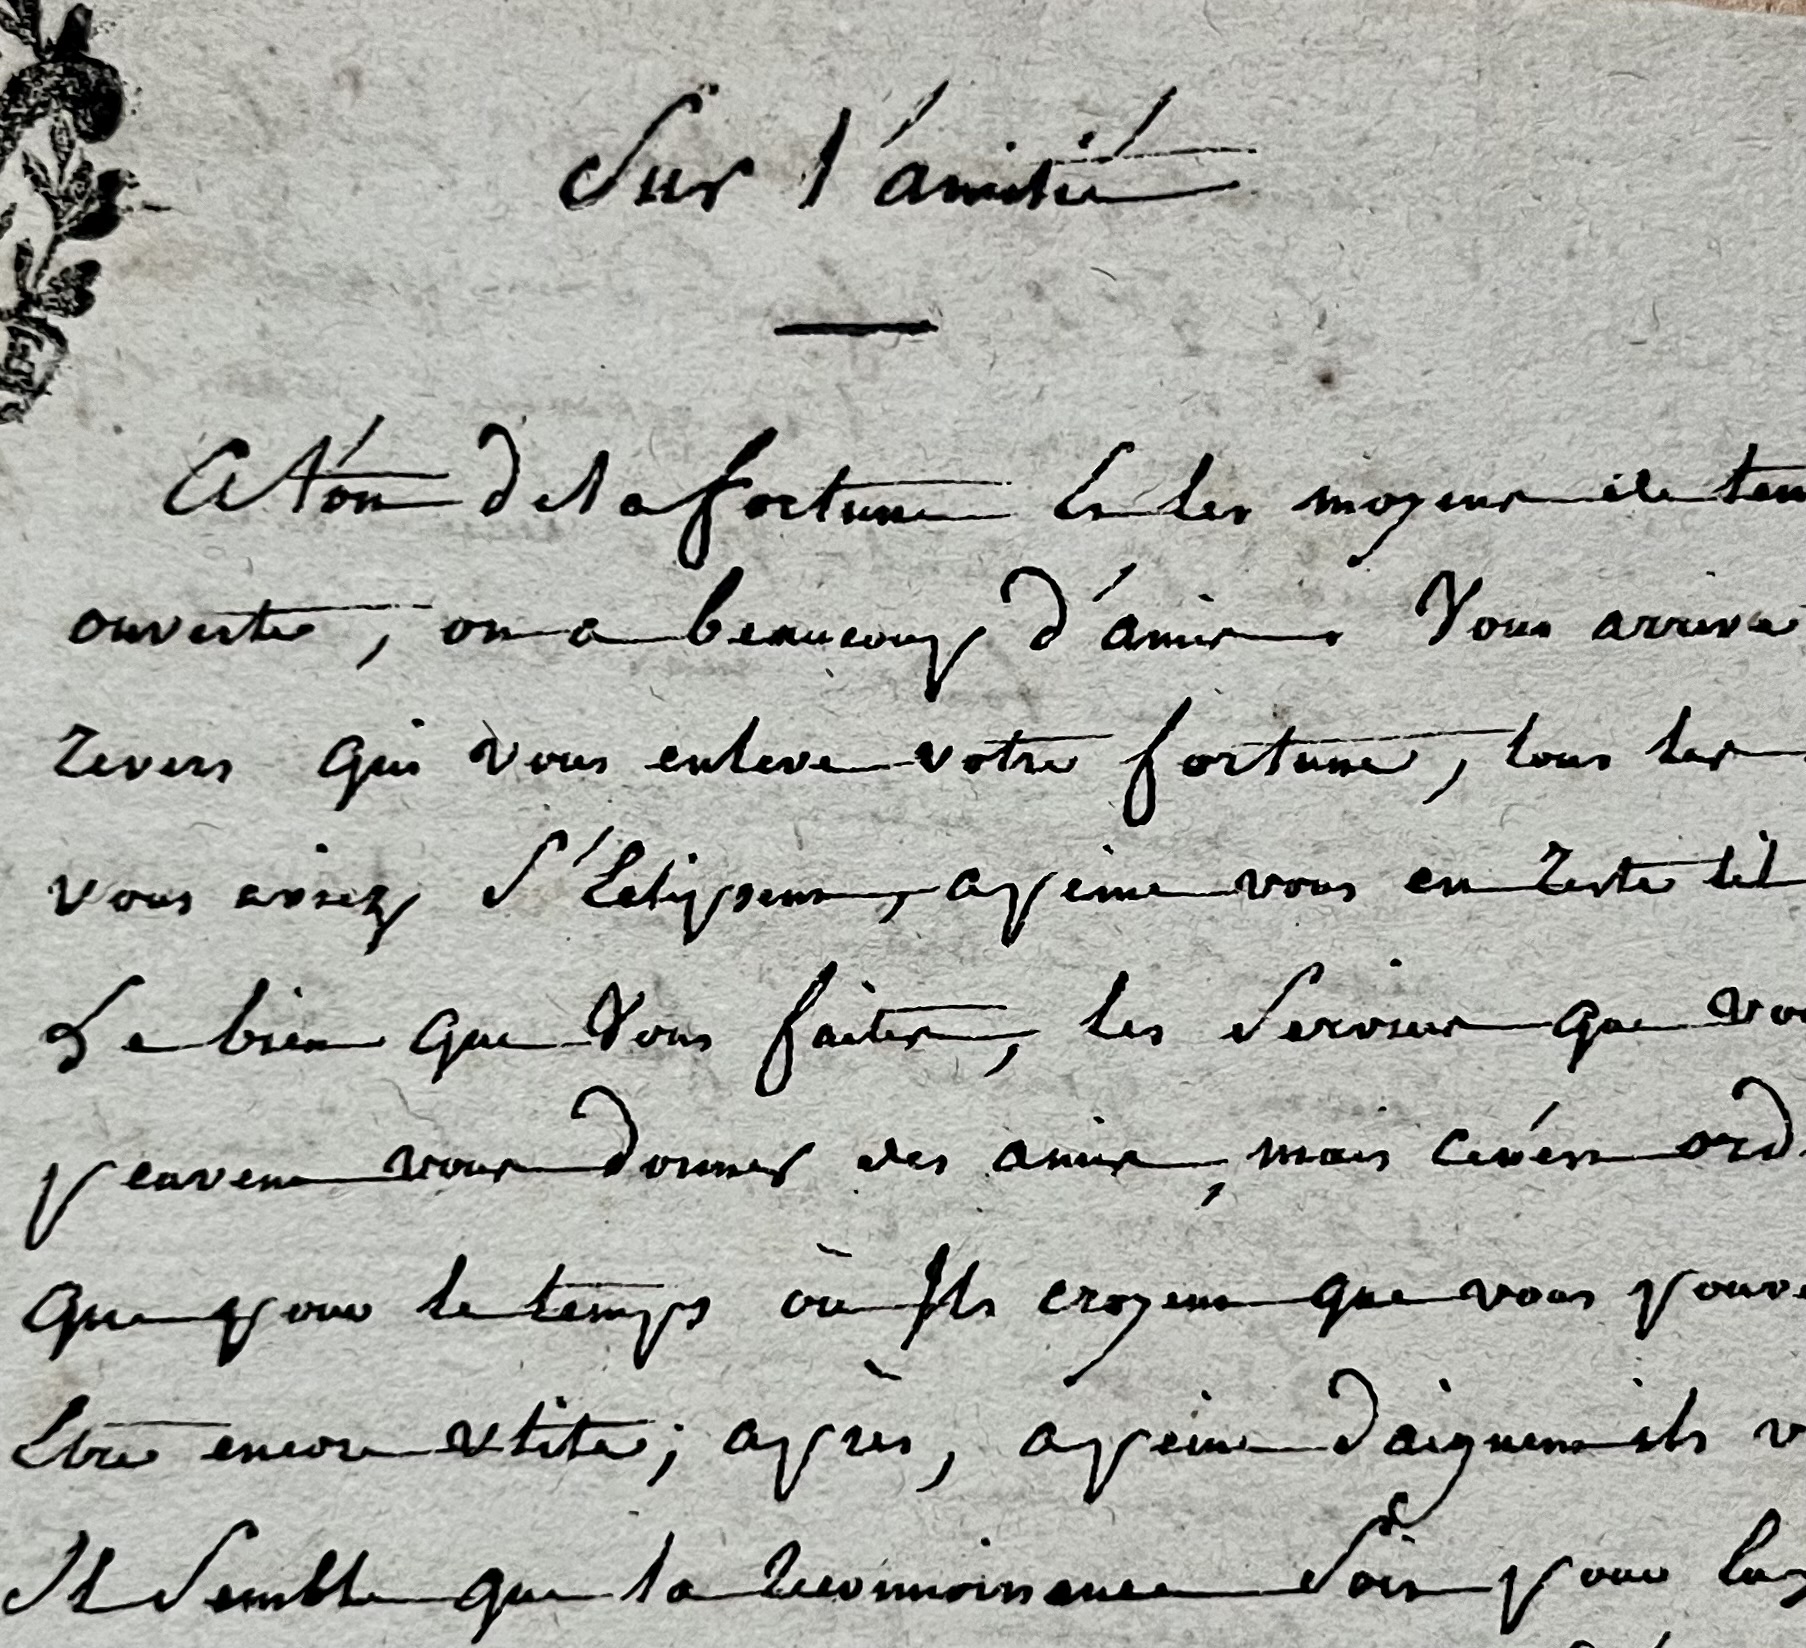 Sur l'amitié
A t'on de la fortune Et les moyens de ten
ouverte, on a beaucoup d'amis. Vous arrive
revers qui vous enleve votre fortune, tous les
vous aviez s'Eclipsent, apeine vous en reste t'il
Le bien que Vous faites, les services que vou
peuvent vous donner des amis, mais ce n'est ord
que pour le temps où Ils croyent que vous pouve
Etre encore utile; après, apeine daignent ils v
Il semble que la reconnoissance soit pour la